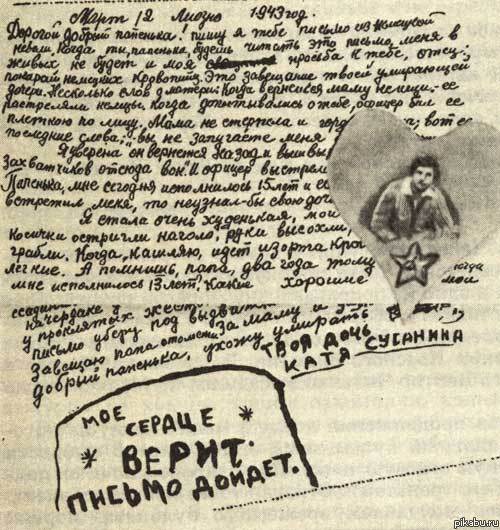 Март, 12, Лиозно 1943 год.
Дорогой добрый папенька! пишу я тебе письмо из немецкой
неволи. Когда ты, папенька, будешь читать это письмо, меня в
живых не будет и моя просьба к тебе, отец:
покарай немецких кровопийц. Это завещание твоей умирающей
дочери. Несколько слов о матери. Когда вернешься, маму не ищи. ее
расстреляли немцы. Когда допытывались о тебе, офицер бил ее
плеткою по лицу. Мама не стерпела и вот ее
последние слова: "вы не запугаете меня
Я уверена он вернется назад и
захватчиков отсюда вон. И офицер
Папенька, мне сегодня исполнилось 15 лет и
встретил меня, то неузнал-бы свою
Я стала очень худенькая, мои
косички остригли наголо, руки высохли,
грабли. Когда, кашляю, идет изорта
легкие. А помнишь, папа, два года тому
мне исполнилось 13 лет. Какие хорошие
когда
мои
чердаке
у проклятых
письмо уберу под
Завещаю папа отомсти за маму и
добрый папенька, ухожу умирать
ТВОЯ ДОЧЬ
КАТЯ СУСАНИНА
МОЕ
СЕРДЦЕ
ВЕРИТ.
ПИСЬМО ДОЙДЕТ.
pikabu.ru